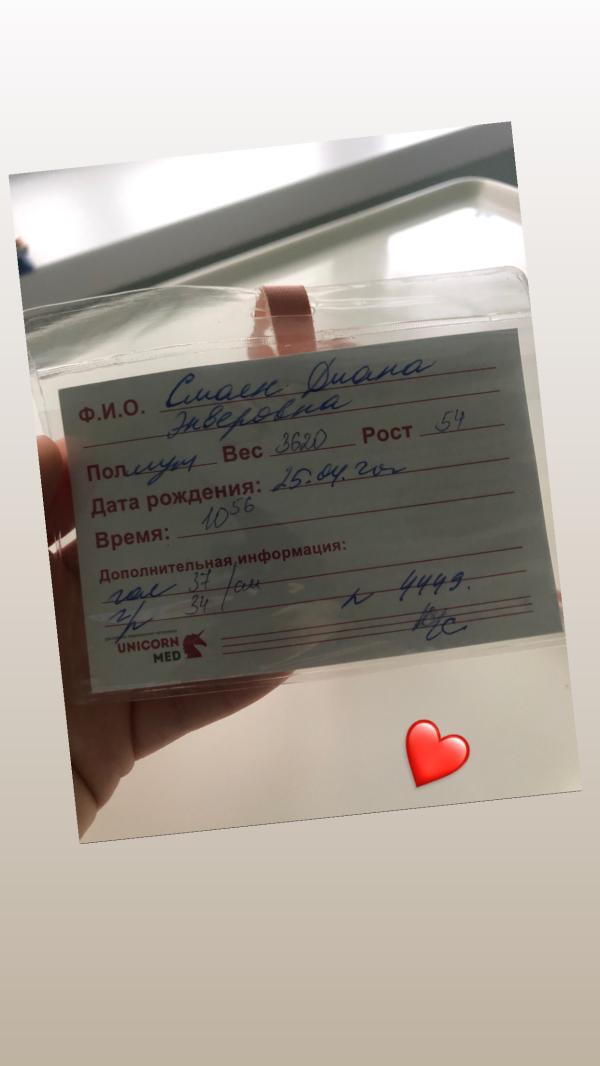 Ф.И.О. Смаен Диана
Энверовна
Пол муж Вес 3620 Рост 54
Дата рождения: 25.04.
Время: 10 56
Дополнительная информация:
гол 37 /см
г/р 34
N 4449.
UNICORN
MED